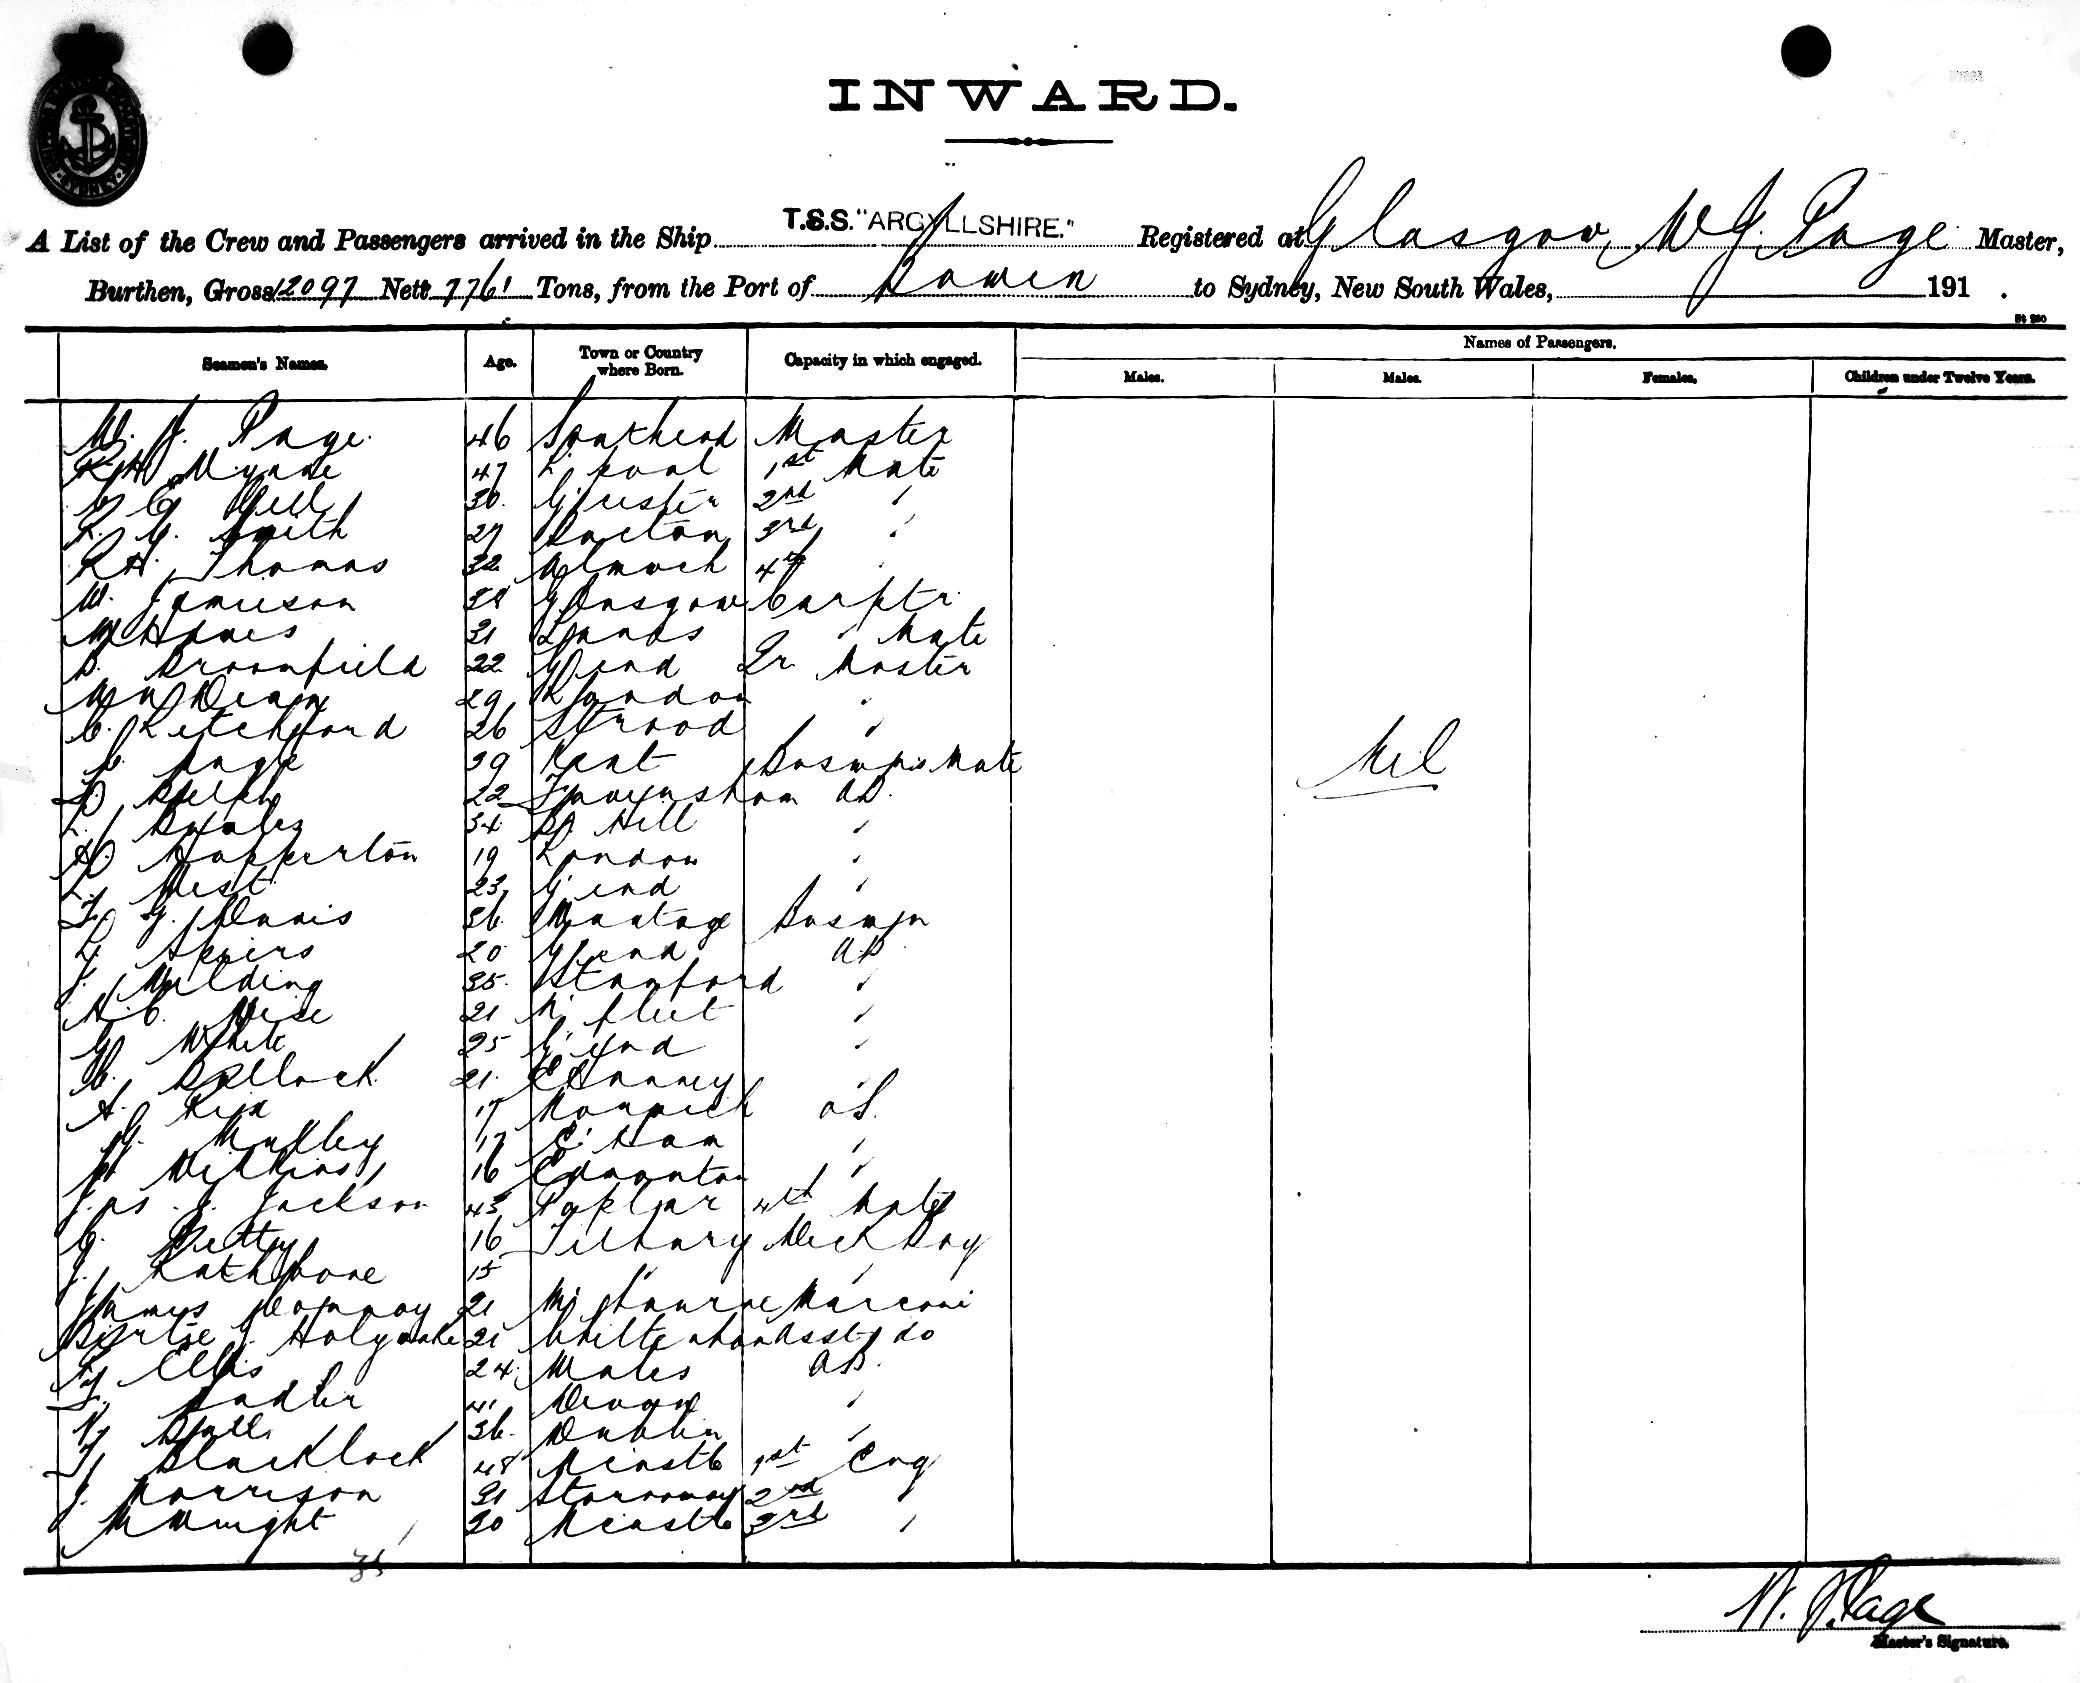 INWARD.
A List of the Crew and Passengers arrived in the Ship T.S.S. "ARGYLLSHIRE." Registered at Glasgow, W J. Page Master,
Burthen, Gross 12097 Nett 7761 Tons, from the Port of Bowen to Sydney, New South Wales, 191 .
Names of Passengers.
Seamen's Names. Age. Town or Country where Born. Capacity in which engaged. Males. Males. Females. Children under Twelve Years.
W. J. Page. 46 Southend Master
47 L'pool 1st Mate
Gill 30. 2nd "
Smith 27 3rd "
R H. Thomas 32 Almwch 4th "
W. Jamieson 38 Glasgow Carptr.
31 " Mate
Broomfield 22 G'end Qr Master
29 London "
C. Letchford 26 Strood "
39 Kent Boswns Mate
22 AB.
34 Hill "
Happerton 19 London "
West 23 G'end "
F. G. Davis 36. Wantage Boswn
Spiers 20 G'end AB
J. Wilding 35. Stamford "
H. C. Wise 21 N'fleet "
G. White 25 G'end "
C. Pollock 21. "
A. Rix 17 Norwich OS.
G. Mulley 17 E. Ham "
Wilkins 16 Edmonton "
Jas. J. Jackson 43 Poplar 4th Mate
G. Petty 16 Tilbury Deck Boy
J. Rathbone 15 " "
James 21 Marconi
Holyoake 21 Asst do
Ellis 24. Wales AB.
F. Sadler 41 Devon "
36. Dublin "
Blacklock 48 N'castle 1st Eng
J. Morrison 31 Stornoway 2nd "
M Wright 30 N'castle 3rd "
Nil
35
W. J. Page
Master's Signature.